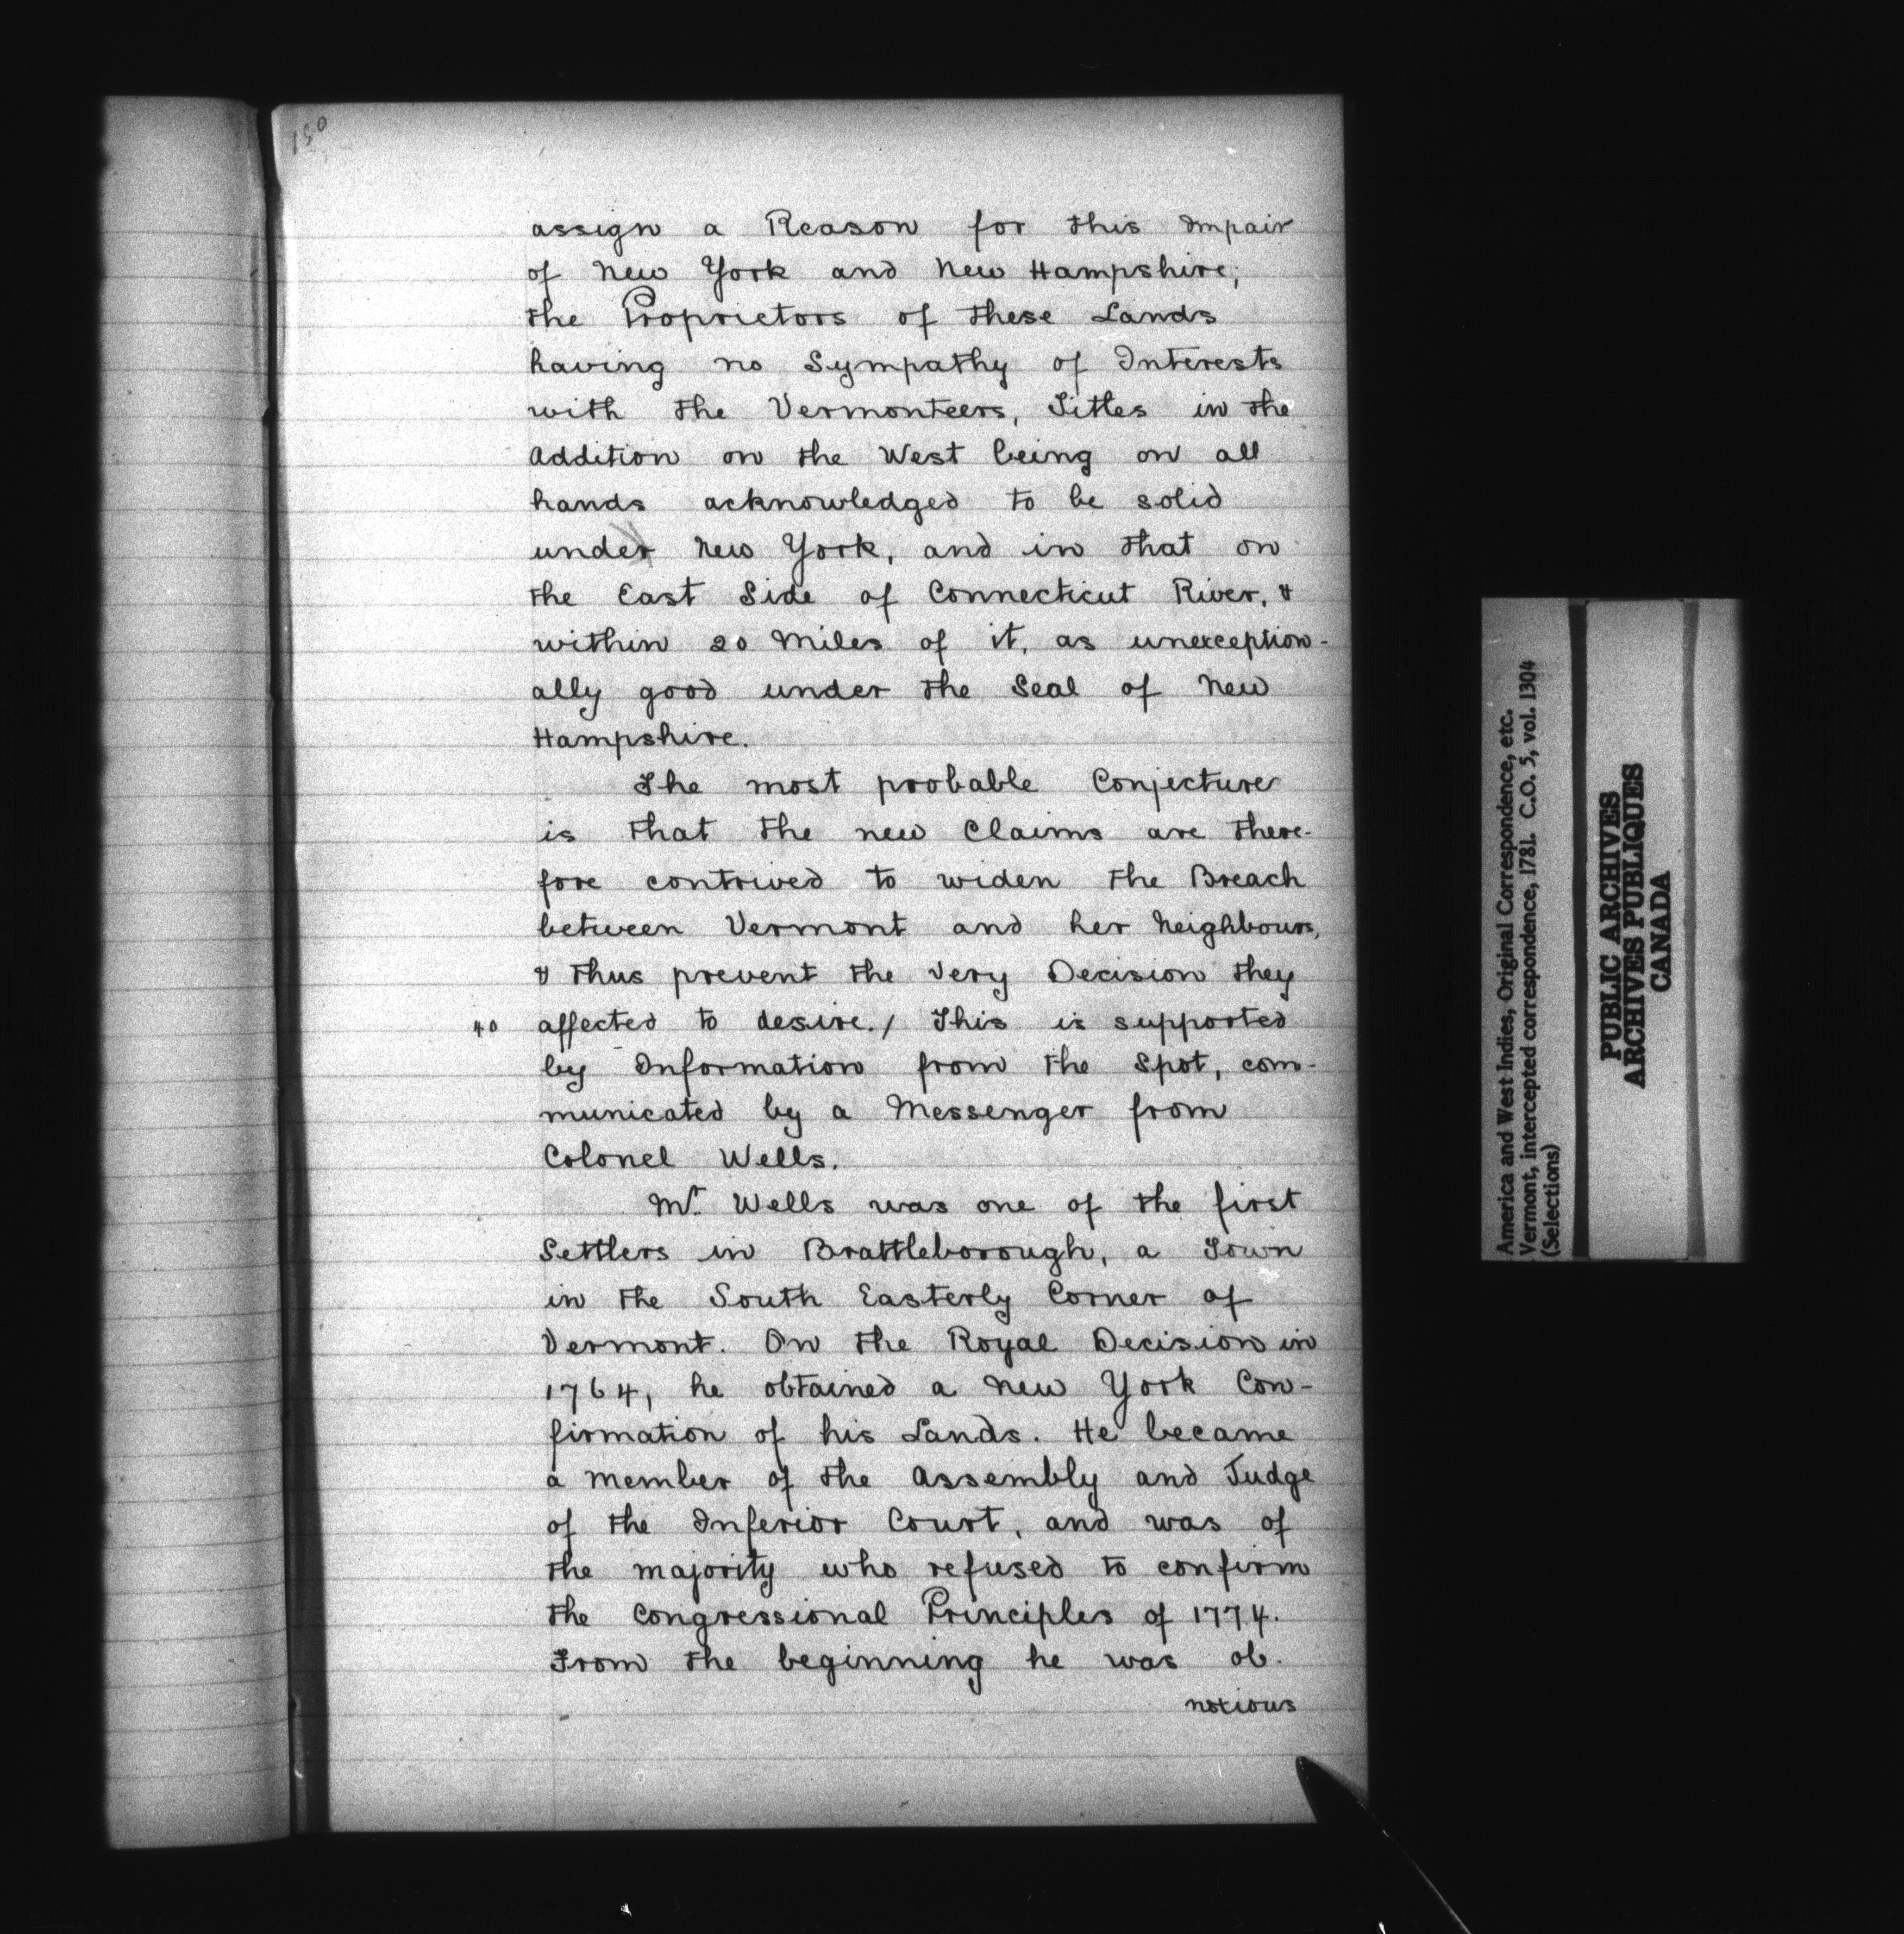 150
assign a Reason for this Impair
of New York and New Hampshire;
the Proprietors of these Lands
having no Sympathy of Interests
with the Vermonteers, Titles in the
Addition on the West being on all
hands acknowledged to be solid
under New York, and in that on
the East Side of Connecticut River, &
within 20 Miles of it, as unexception-
ally good under the Seal of New
Hampshire.
The most probable Conjecture
is that the new Claims are there-
fore contrived to widen the Breach
between Vermont and her Neighbours,
& thus prevent the very Decision they
40 affected to desire./ This is supported
by Information from the Spot, com-
municated by a Messenger from
Colonel Wells.
Mr. Wells was one of the first
Settlers in Brattleborough, a Town
in the South Easterly Corner of
Vermont. On the Royal Decision in
1764, he obtained a New York Con-
firmation of his Lands. He became
a Member of the Assembly and Judge
of the Inferior Court, and was of
the majority who refused to confirm
the Congressional Principles of 1774.
From the beginning he was ob-
noxious
America and West Indies, Original Correspondence, etc.
Vermont, intercepted correspondence, 1781. C.O. 5, vol. 1304
(Selections)
PUBLIC ARCHIVES
ARCHIVES PUBLIQUES
CANADA